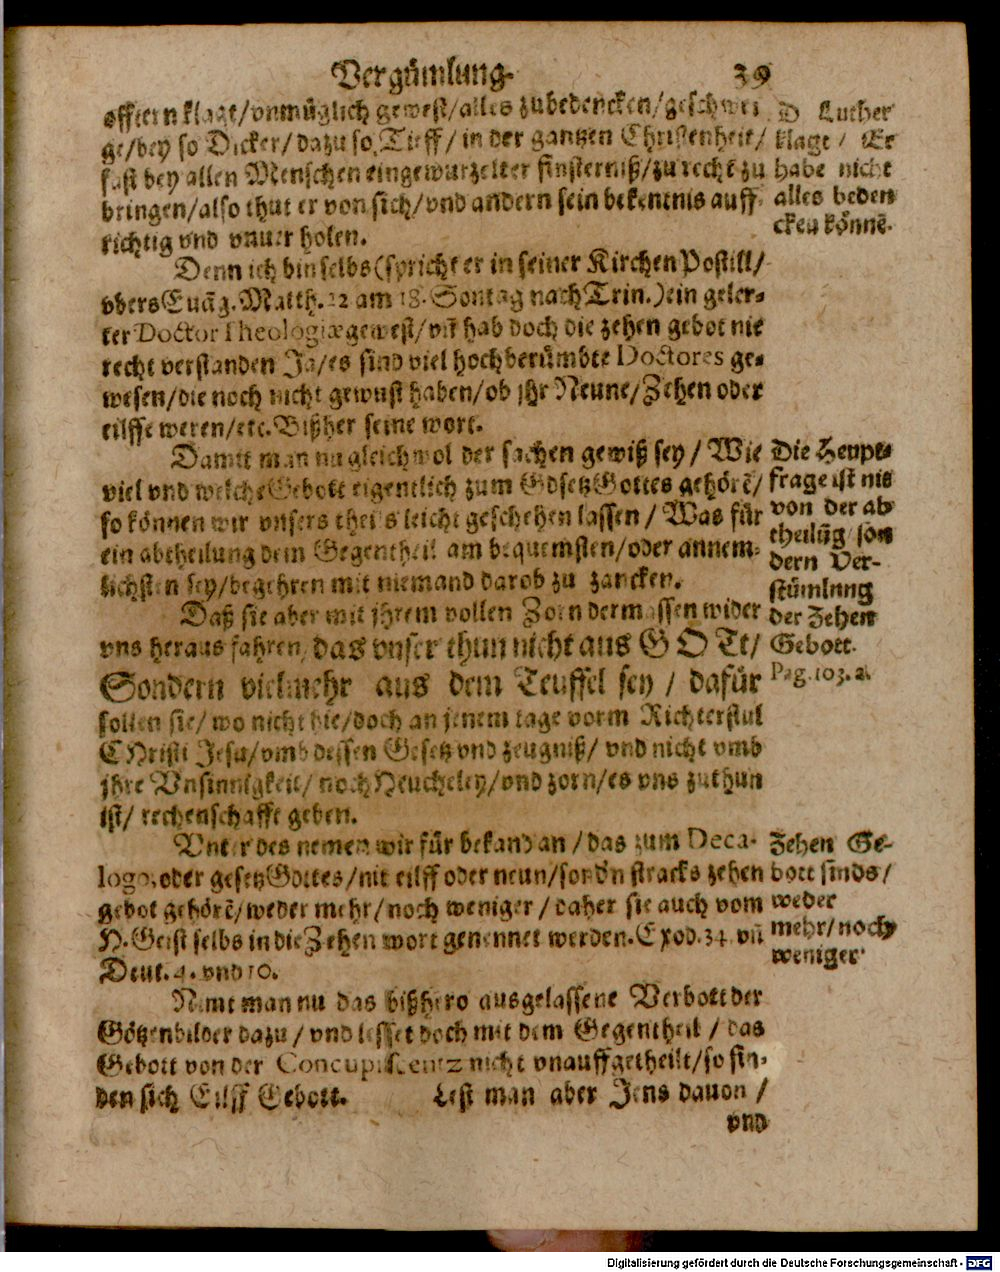 Vergümlung. 39
offtern klagt/vnmüglich gewest/alles zubedencken/geschwei
ge/bey so Dicker/dazu so Tieff/in der gantzen Christenheit/
fast bey allen Menschen eingewurzelter finsterniß/zu recht zu
bringen/also thut er von sich/vnd andern sein bekentnis auff
richtig vnd holen.
D Luther
klagt / Er
habe nicht
alles beden
cken könnē.
Denn ich bin selbs (spricht er in seiner Kirchen Postill/
vbers Euāg. Matth. 22 am 18. Sontag nach Trin.) ein geler-
ter Doctor Theologiæ gewest/vñ hab doch die zehen gebot nie
recht verstanden Ja/es sind viel hochberümbte Doctores ge-
wesen/die noch nicht gewust haben/ob jhr Neune/Zehen oder
eilffe weren/etc. Bißher seine wort.
Damit man nu gleichwol der sachen gewiß sey / Wie
viel vnd welche Gebott eigentlich zum Gesetz Gottes gehörē/
so können wir vnsers theils leicht geschehen lassen / Was für
ein abtheilung dem Gegentheil am bequemsten/oder annem-
lichsten sey/begehren mit niemand darob zu zancken.
Die Heupt-
frage ist nit
von der ab
theilūg son
dern Ver-
stümlung
der Zehen
Gebott.
Daß sie aber mit jhrem vollen Zorn dermassen wider
vns heraus fahren, das vnser thun nicht aus GOTt/
Sondern vielmehr aus dem Teuffel sey / dafür
sollen sie/wo nicht hie/doch an jenem tage vorm Richterstul
CHristi Jesu/vmb dessen Gesetz vnd zeugniß/ vnd nicht vmb
jhre Vnsinnigkeit/ noch Heucheley/vnd zorn/es vns zuthun
ist/ rechenschafft geben.
Pag. 103. a.
Vnter des nemen wir für bekand an / das zum Deca-
logo, oder gesetz Gottes/nit eilff oder neun/sondn stracks zehen
gebot gehörē/weder mehr/noch weniger / daher sie auch vom
H. Geist selbs in die Zehen wort genennet werden. Exod. 34. vñ
Deut. 4. vnd 10.
Zehen Ge-
bott sinds/
weder
mehr/noch
weniger
Nimt man nu das bißhero ausgelassene Verbott der
Götzenbilder dazu / vnd lesset doch mit dem Gegentheil / das
Gebott von der Concupiscentz nicht vnauffgetheilt/so fin-
den sich Eilff Gebott. Lest man aber Jens dauon /
vnd
Digitalisierung gefördert durch die Deutsche Forschungsgemeinschaft - DFG